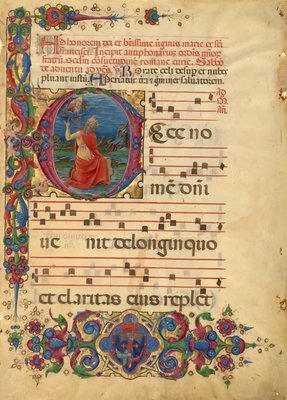 Ad honorem dei et btissime uginis marie et sci
francisci. Incipit antiphonariū ordis mino
fratrū. Secdm consuetudinem romane curie. Sabbo
de aduentu ad Rorate celi desup et nubes
pluant iustū Aperiatur et germinet saluatorem.
Ecce no
mē dñi
ue nit de longinquo
et claritas eius replet